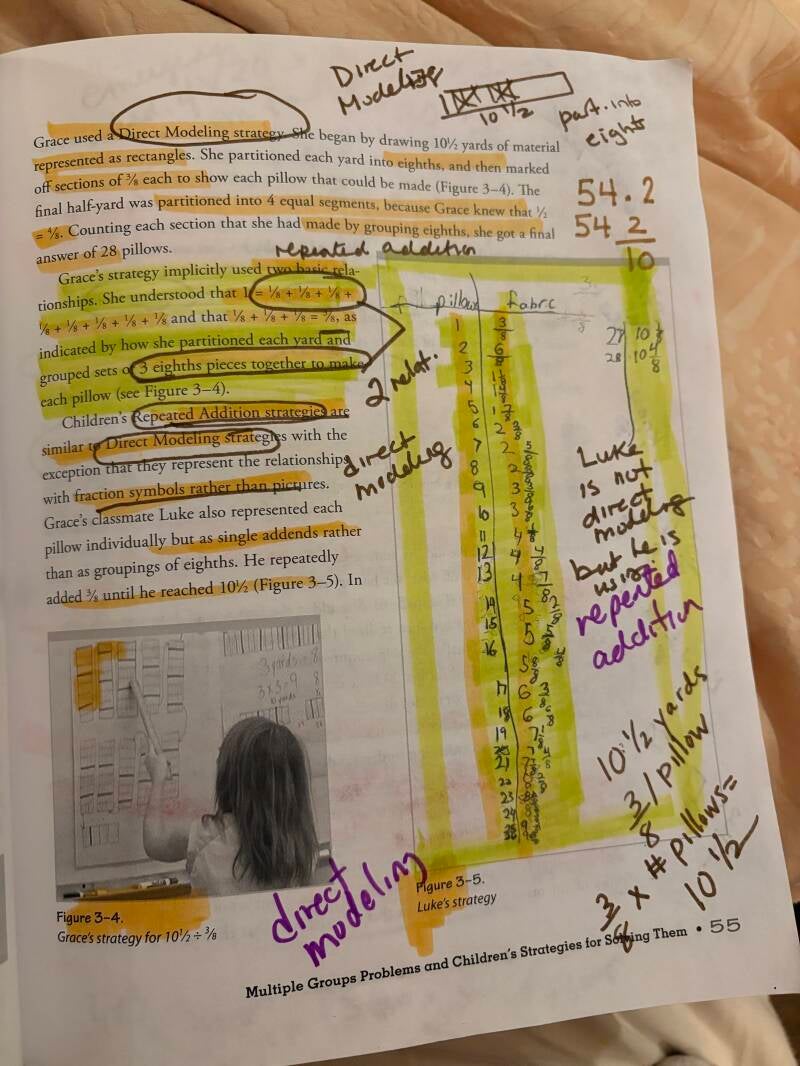 Direct
Modeling
10 1/2
part. into
eights
54.2
54 2/10
Grace used a Direct Modeling strategy. She began by drawing 10½ yards of material
represented as rectangles. She partitioned each yard into eighths, and then marked
off sections of ⅜ each to show each pillow that could be made (Figure 3–4). The
final half-yard was partitioned into 4 equal segments, because Grace knew that ½
= 4/8. Counting each section that she had made by grouping eighths, she got a final
answer of 28 pillows.
repeated addition
Grace's strategy implicitly used two basic rela-
tionships. She understood that 1 = ⅛ + ⅛ + ⅛ +
⅛ + ⅛ + ⅛ + ⅛ + ⅛ and that ⅛ + ⅛ + ⅛ = ⅜, as
indicated by how she partitioned each yard and
grouped sets of 3 eighths pieces together to make
each pillow (see Figure 3–4).
2 relat.
Children's Repeated Addition strategies are
similar to Direct Modeling strategies with the
exception that they represent the relationships
with fraction symbols rather than pictures.
Grace's classmate Luke also represented each
pillow individually but as single addends rather
than as groupings of eighths. He repeatedly
added ⅜ until he reached 10½ (Figure 3–5). In
direct
modeling
pillow fabrc
1 3/8
2 6/8
3 1
4 1
5 1
6 2
7 2
8
9 3
10 3
11 4
12 4
13 4 7/8
14 5
15 5
16
17 6 3/8
18 6
19 7
21
22
23
24
27 10
28 10 4/8
Luke
is not
direct
modeling
but he is
using
repeated
addition
10 1/2 yards
3/8 / pillow
3/8 x # pillows =
10 1/2
3 yards = 8
3 x 3 = 9
direct
modeling
Figure 3–4.
Grace's strategy for 10½ ÷ ⅜
Figure 3–5.
Luke's strategy
Multiple Groups Problems and Children's Strategies for Solving Them • 55